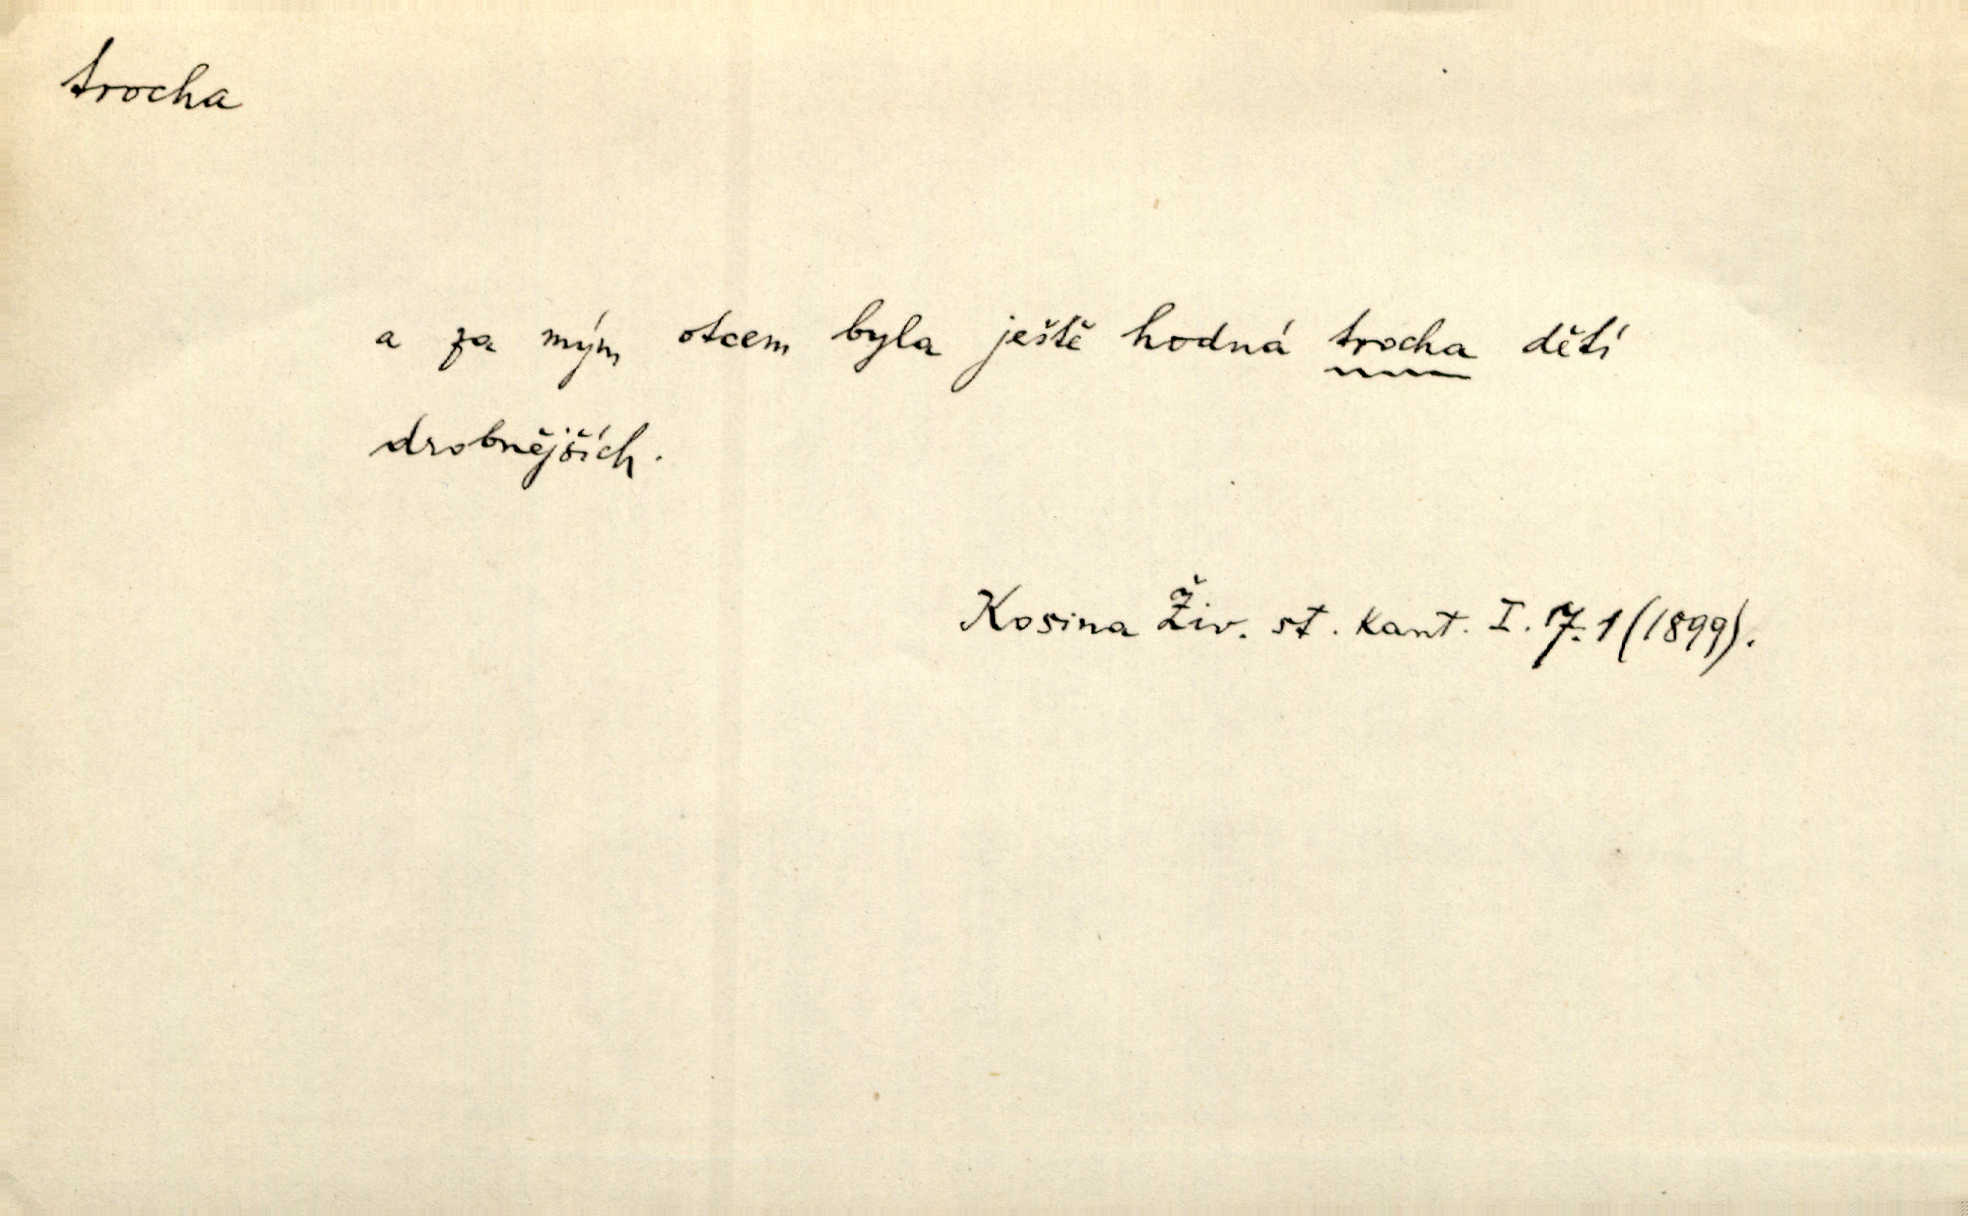 trocha
a za mým otcem byla ještě hodná trocha dětí
drobnějších.
Kosina Živ. st. kant. I. 7. 1 (1899).